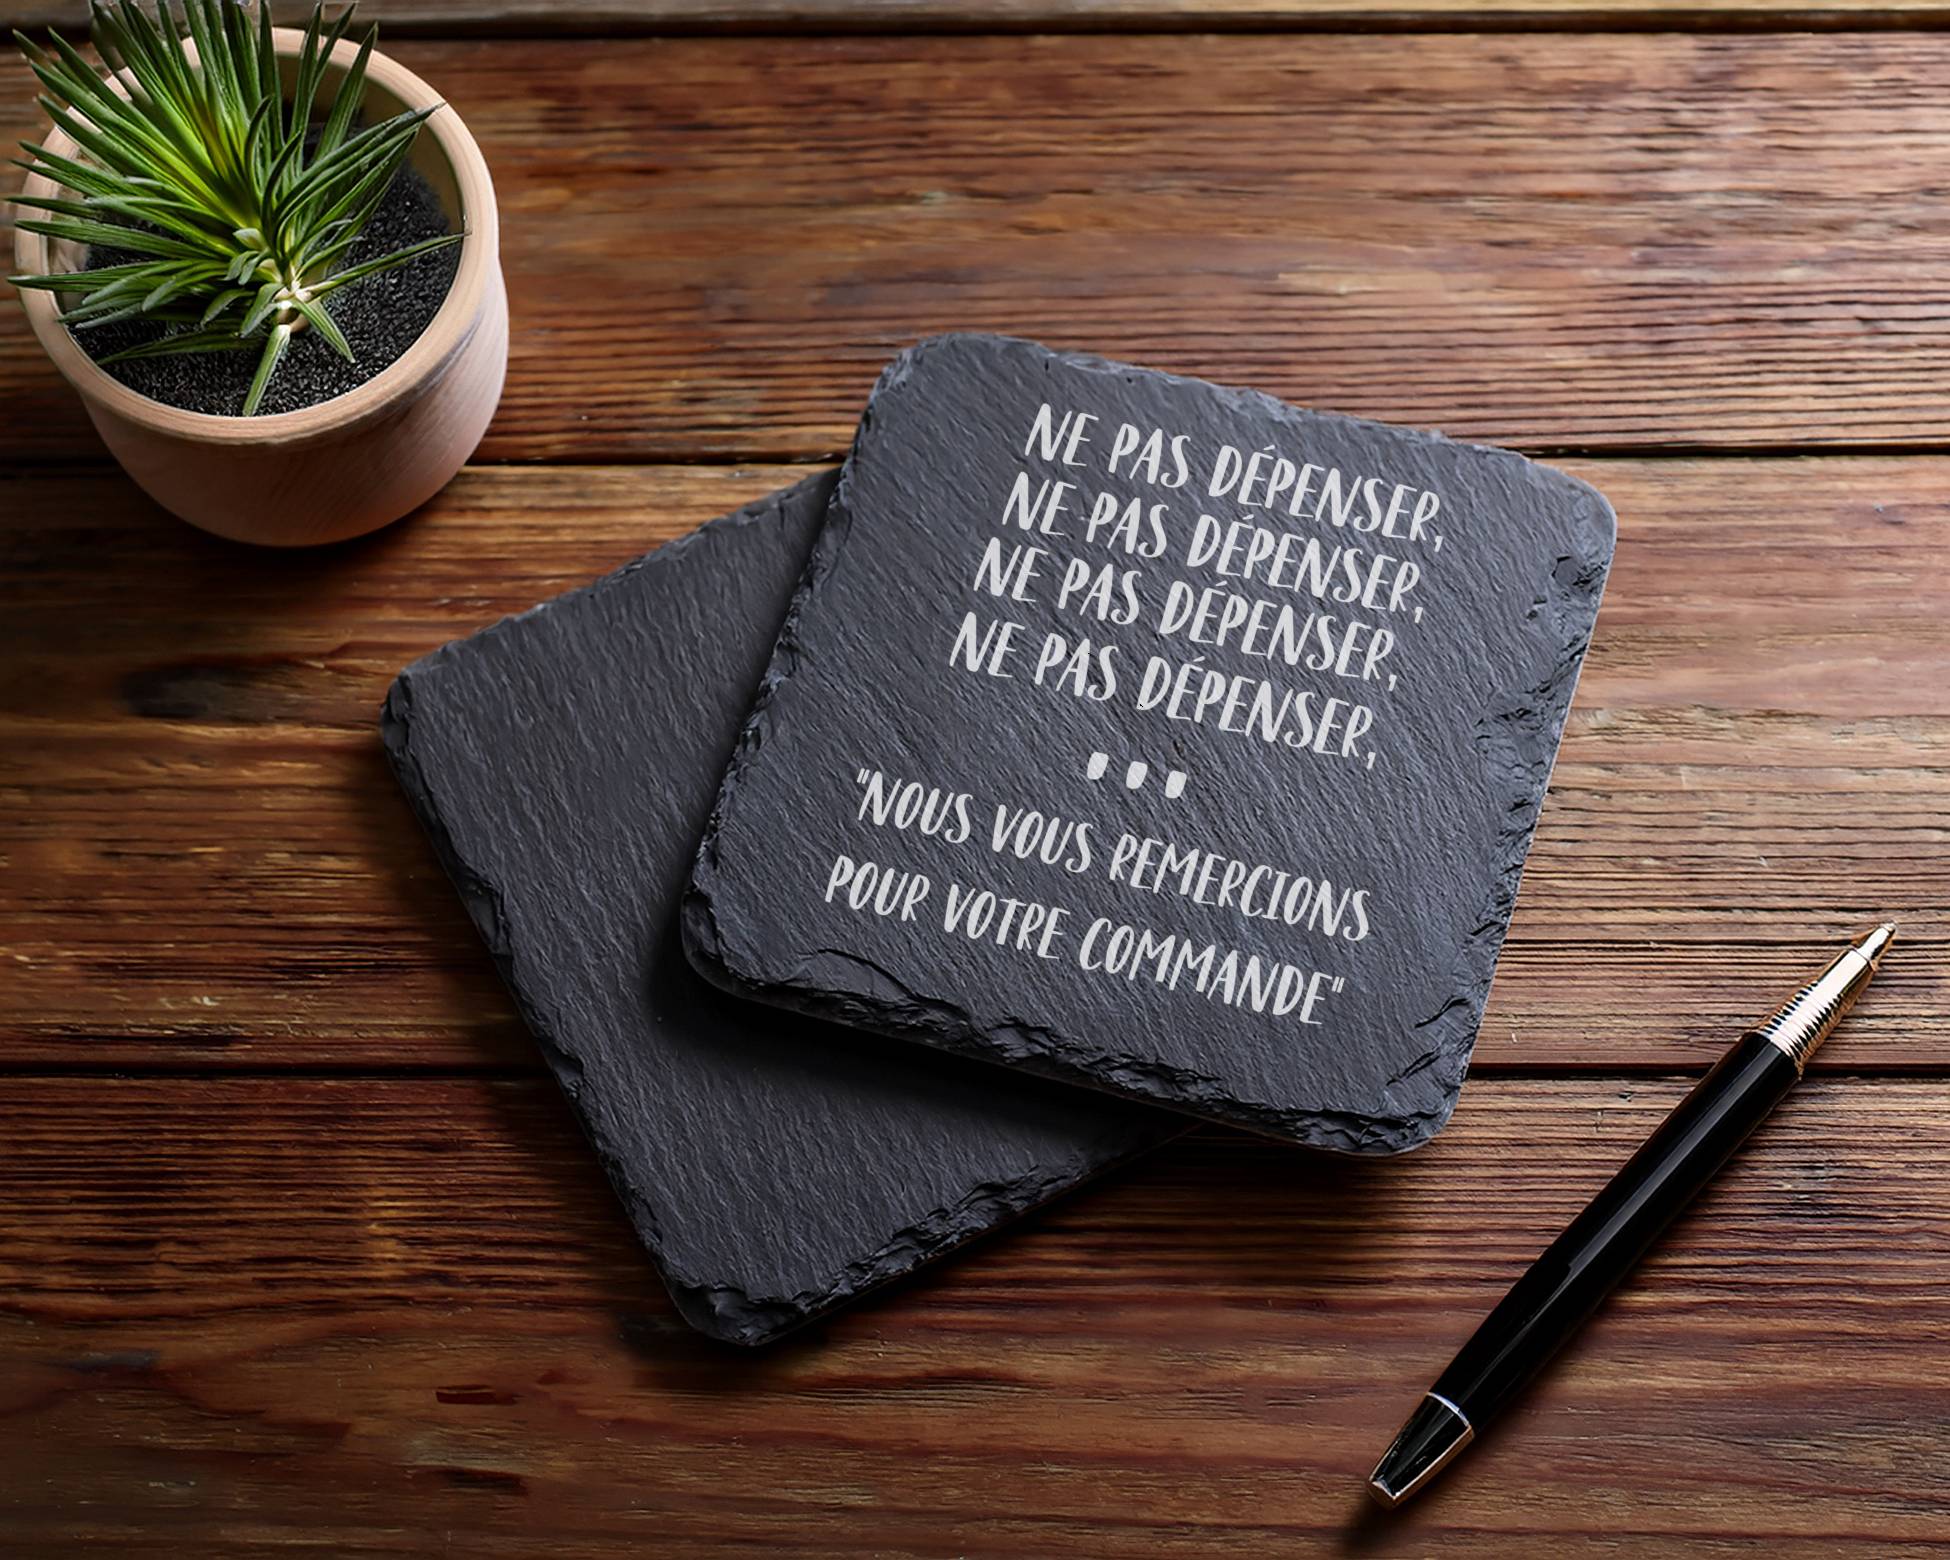 NE PAS DÉPENSER,
NE PAS DÉPENSER,
NE PAS DÉPENSER,
NE PAS DÉPENSER,
...
"NOUS VOUS REMERCIONS
POUR VOTRE COMMANDE"